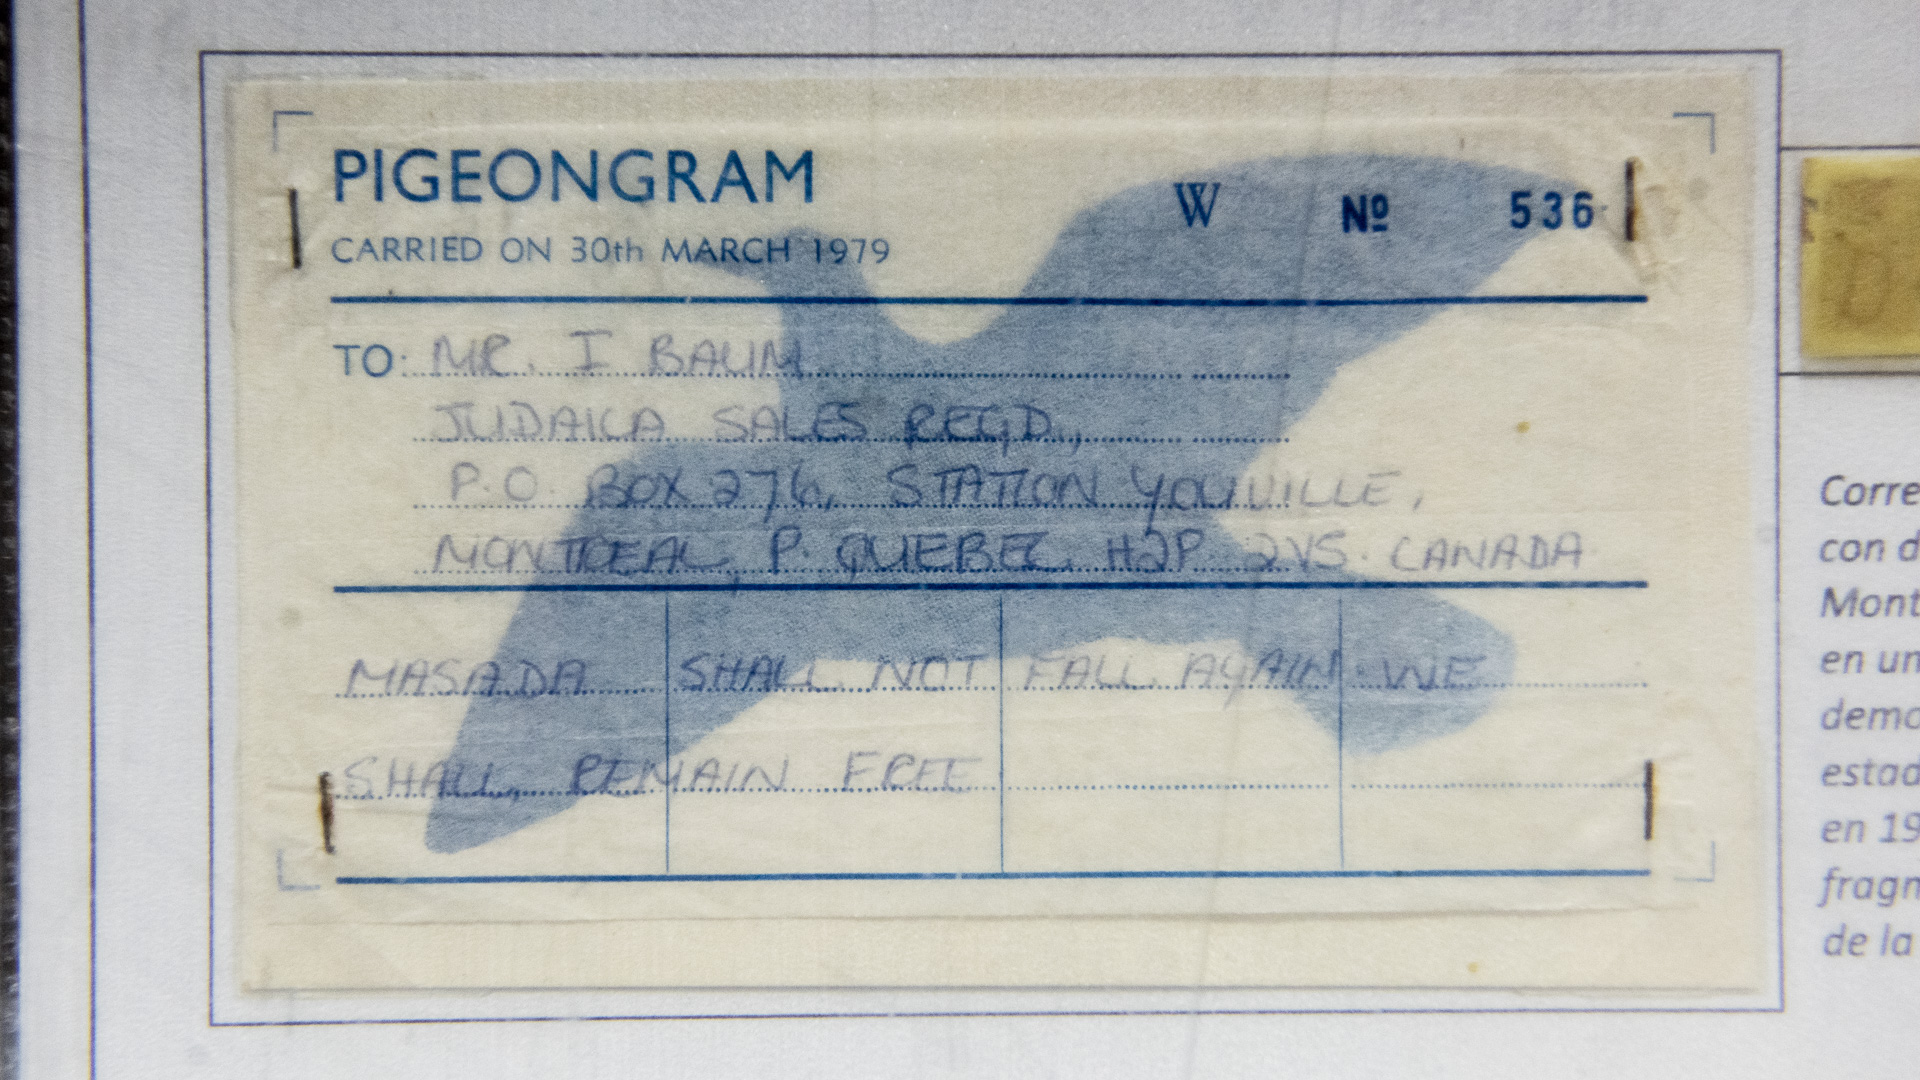 PIGEONGRAM W Nº 536
CARRIED ON 30th MARCH 1979
TO: MR. I BAUM
JUDAICA SALES REG'D.,
P.O. BOX 276, STATION YOUVILLE,
MONTREAL, P. QUEBEC. H2P 2V5. CANADA
MASADA SHALL NOT FALL AGAIN. WE
SHALL REMAIN FREE
Corre
con d
Mont
en un
demo
estad
en 19
fragm
de la